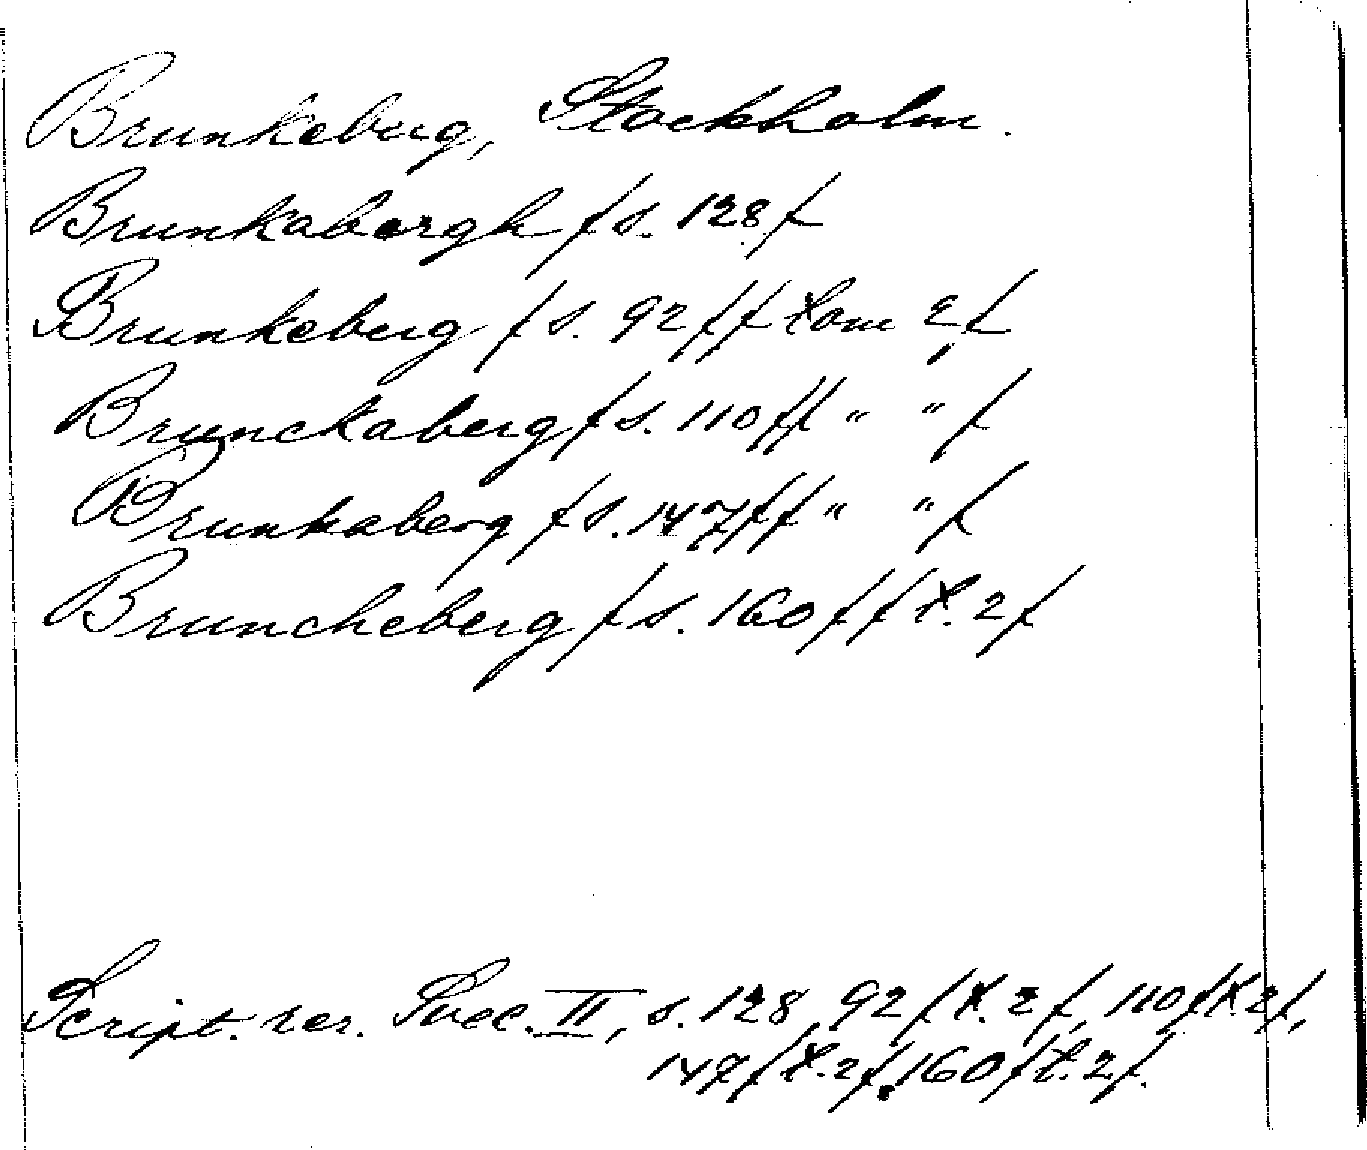 Brunkeberg, Stockholm.
Brunkabergh / s. 128 /
Brunkeberg / s. 92 / / tom 2 /
Brunckaberg / s. 110 / / " " /
Brunkaberg / s. 147 / / " " /
Bruncheberg / s. 160 / / t. 2 /
Script. rer. Svec. II, s. 128, 92 / t. 2 /, 110 / t. 2 /,
147 / t. 2 /, 160 / t. 2 /.